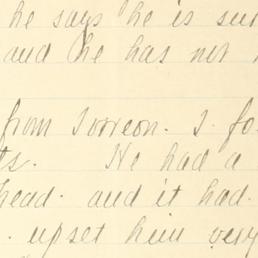 he says he is su
and he has not
from Torreon. I. fo
ts. He had a
head. and it had.
. upset him very